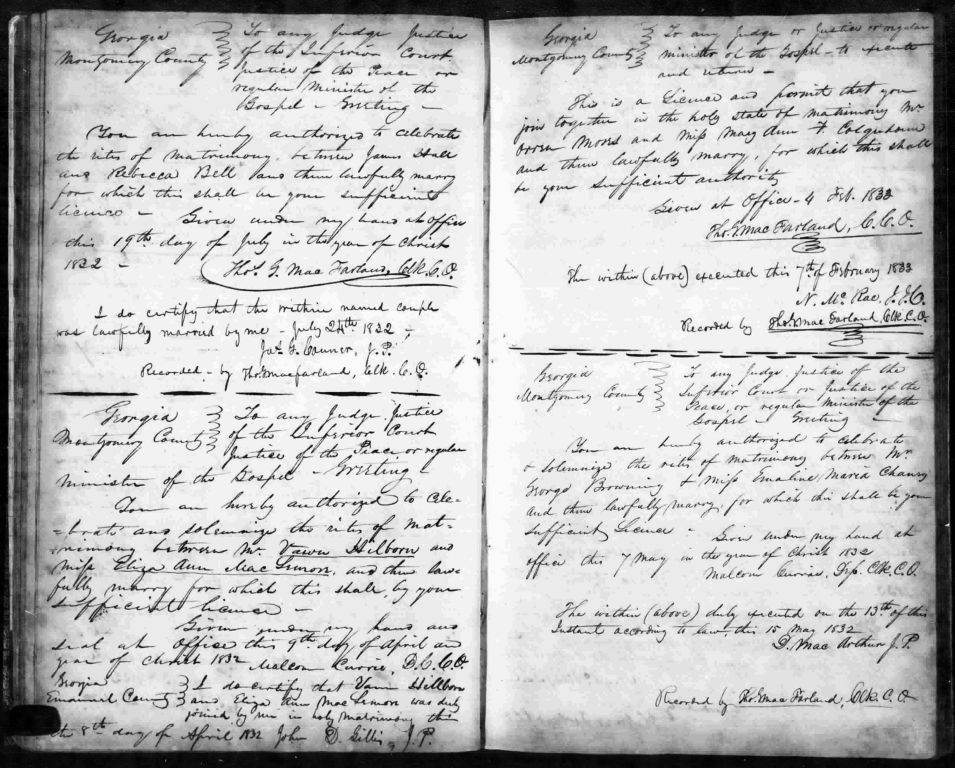 Georgia To any Judge Justice
Montgomery County of the Inferior Court
Justice of the Peace or
regular Minister of the
Gospel - Greeting -
You are hereby authorized to celebrate
the rites of matrimony between James Hall
and Rebecca Bell and them lawfully marry
for which this shall be your sufficient
licence - Given under my hand at office
this 19th day of July in the year of Christ
1832 - Thos. G. MacFarland, Clk. C.O.
I do certify that the within named couple
was lawfully married by me - July 24th 1832 -
Jas. G. Conner, J.P.
Recorded by Thos. G. MacFarland, Clk. C.O.
Georgia To any Judge Justice
Montgomery County of the Inferior Court
Justice of the Peace or regular
Minister of the Gospel - Greeting
You are hereby authorized to cele-
-brate and solemnize the rites of mat-
-rimony between Mr. Vawn Hilborn and
Miss Eliza Ann MacLemon, and them law-
fully marry for which this shall be your
sufficient licence -
Given under my hand and
seal at Office this 9th day of April an
year of Christ 1832 Malcom Currie, D.C.C.O.
Georgia I do certify that Vann Hillborn
Emanuel County and Eliza Ann MacLemon was duly
joined by me in holy matrimony this
the 8th day of April 1832 John D. Gillis, J.P.
Georgia To any Judge or Justice or regular
Montgomery County minister of the Gospel - to execute
and return -
This is a Licence and permit that you
join together in the holy state of matrimony Mr
Orren Moss and Miss May Ann F Colquhoun
and them lawfully marry, for which this shall
be your sufficient authority
Given at Office - 4 Feb. 1833
Tho. G. MacFarland, C.C.O.
The within (above) executed this 7th of February 1833
N. McRae, J.I.C.
Recorded by Tho. G. MacFarland, Clk. C.O.
Georgia To any Judge Justice of the
Montgomery County Inferior Court or Justice of the
Peace, or regular Minister of the
Gospel - Greeting -
You are hereby authorized to celebrate
& solemnize the rites of matrimony between Mr.
George Browning & Miss Emaline Maria Chaney
and them lawfully marry, for which this shall be your
sufficient Licence - Given under my hand at
office this 7 May in the year of Christ 1832
Malcom Currie, Dep. Clk. C.O.
The within (above) duly executed on the 13th of this
Instant according to law, this 15 May 1832
D. MacArthur J.P.
Recorded by Tho. G. MacFarland, Clk. C.O.